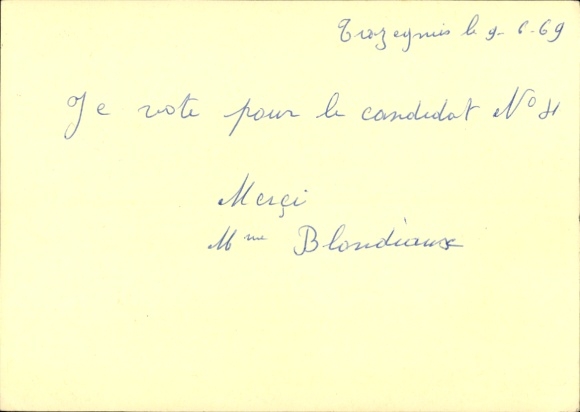 Trazegnies le 9-6-69
Je vote pour le candidat N°
Merçi
Mme Blondiaux